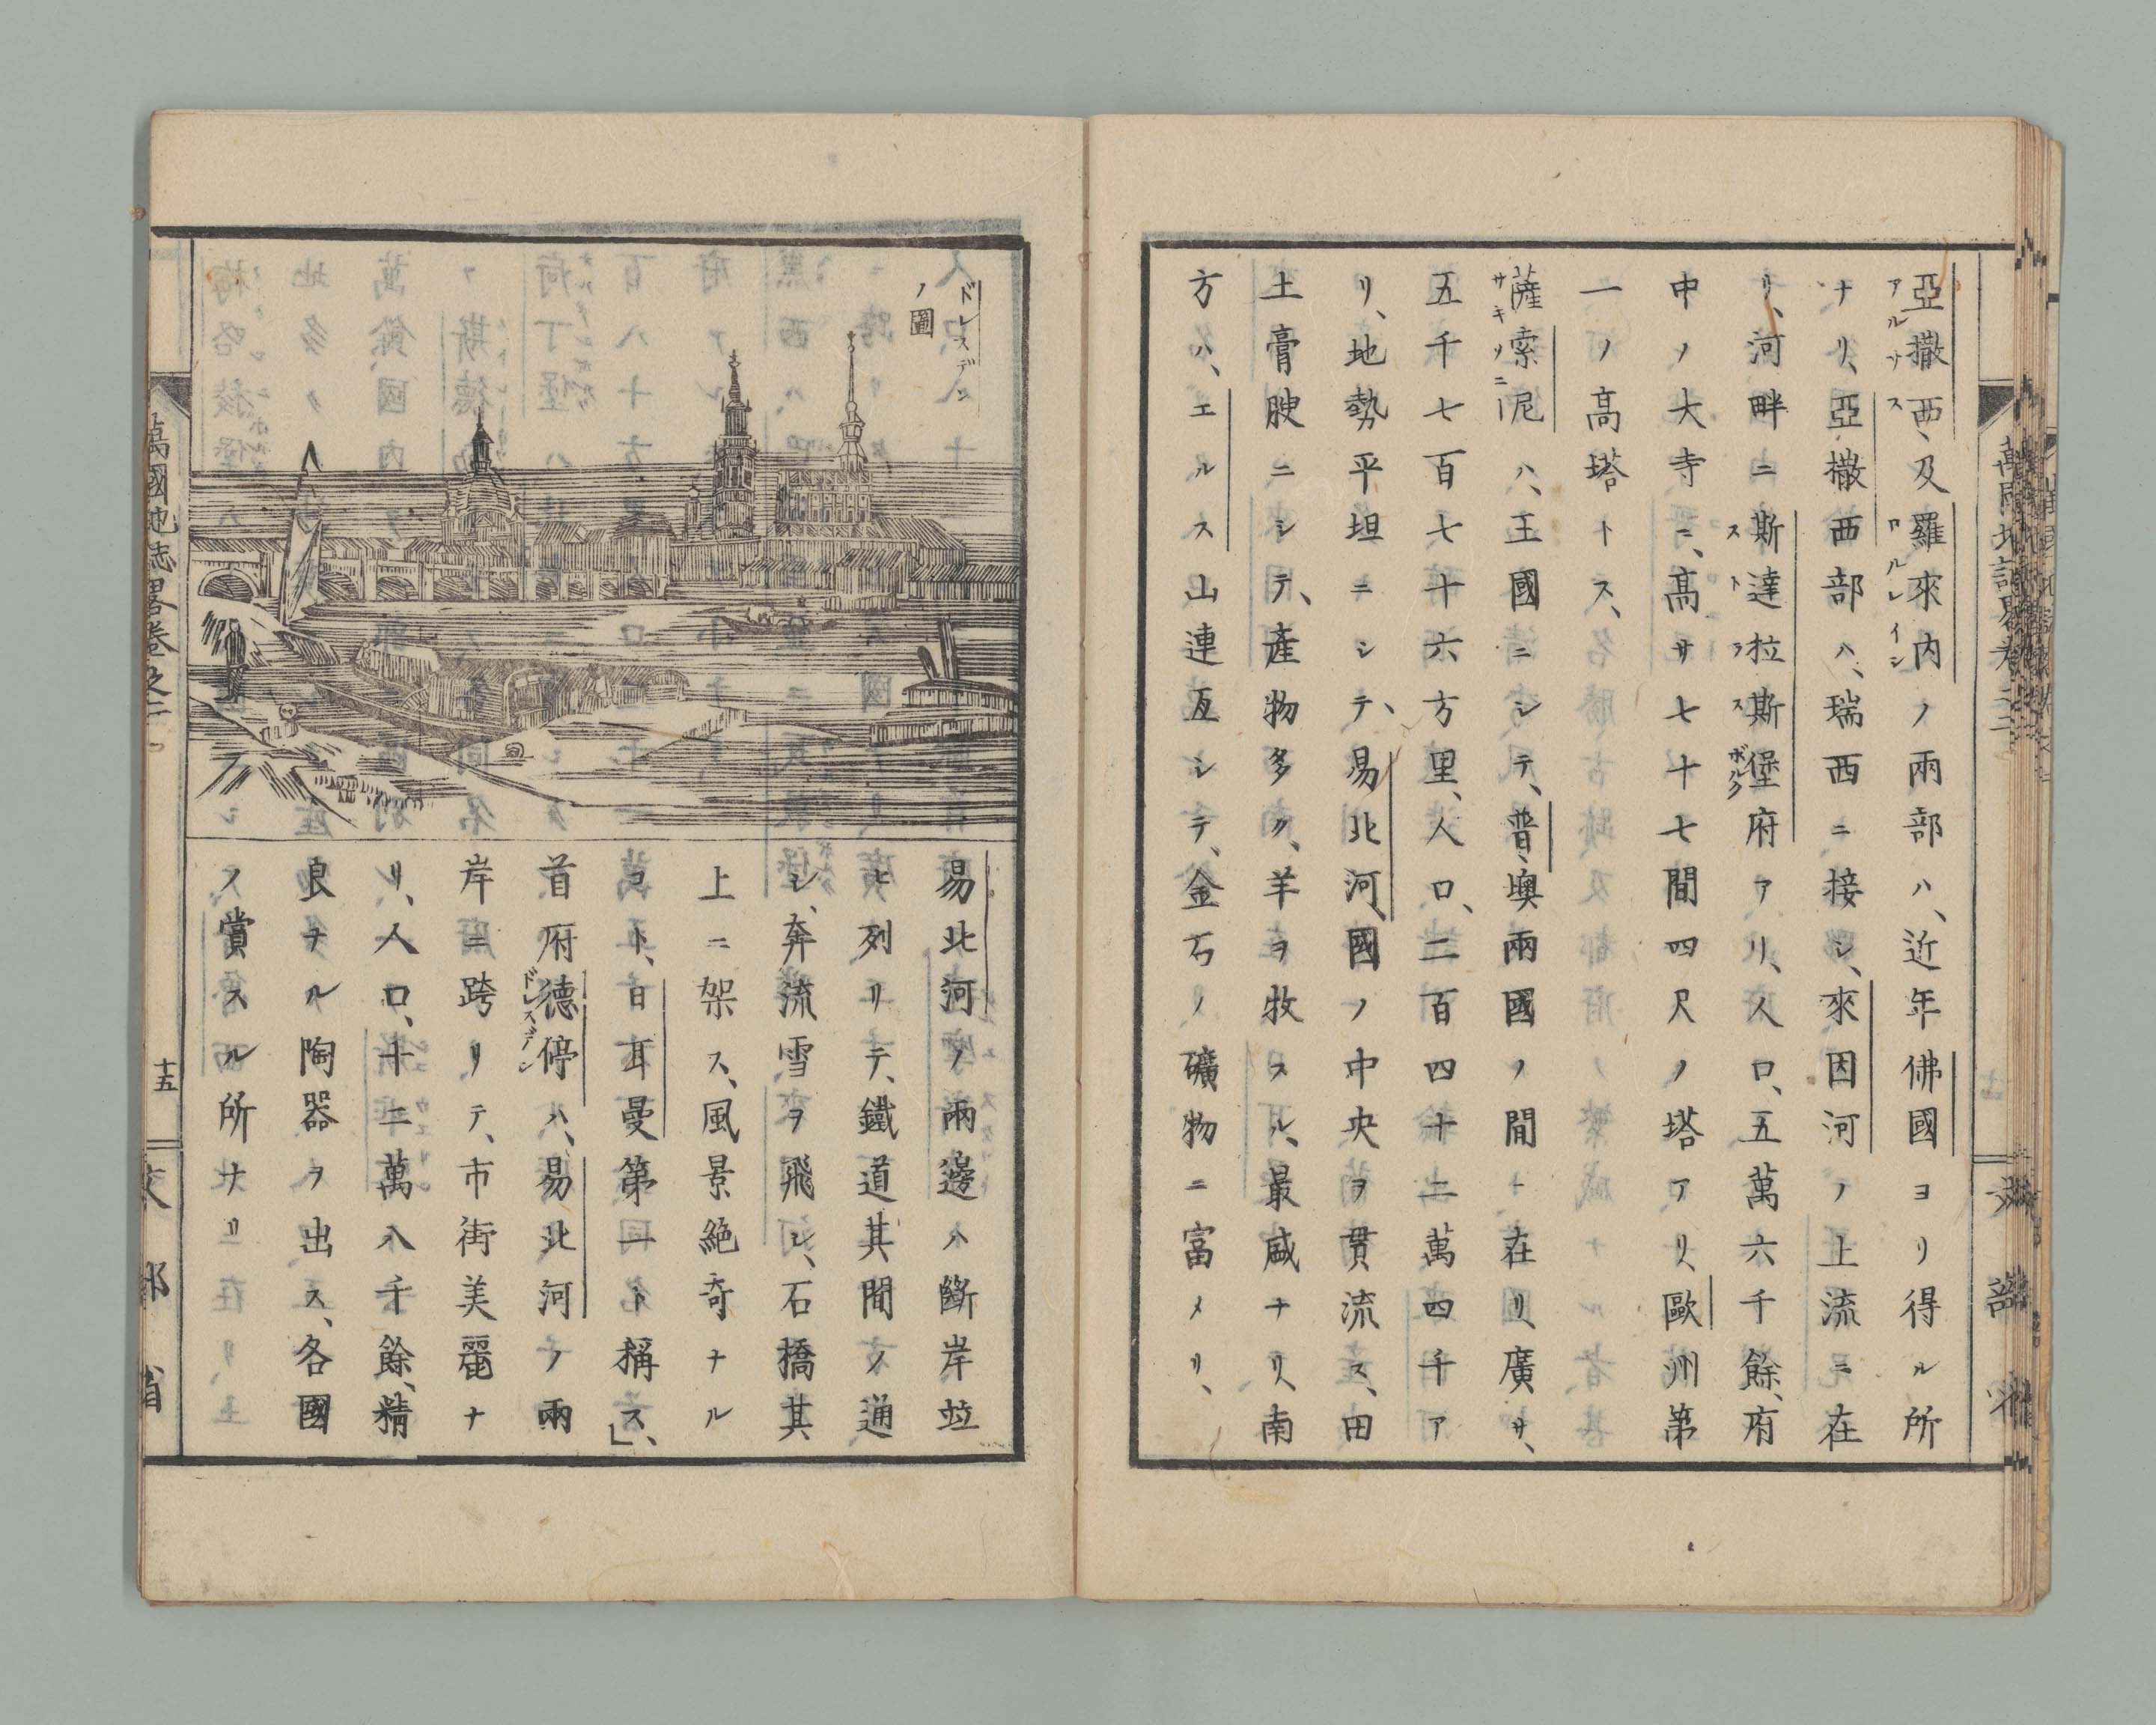 亞撒西、及羅來內ノ兩部ハ、近年佛國ヨリ得ル所
アルサス
ロルレイン
ナリ、亞撒西部ハ、瑞西ニ接シ、來因河ノ上流ニ在
リ、河畔ニ斯達拉斯堡府アリ、人口、五萬六千餘、府
ストラスボルク
中ノ大寺ニ、高サ七十七間四尺ノ塔アリ、歐洲第
一ノ高塔トス、
薩索尼ハ、王國ニシテ、普、墺兩國ノ間ニ在リ、廣サ、
サキソニー
五千七百七十六方里、人口、二百四十二萬四千ア
リ、地勢平坦ニシテ、易北河、國ノ中央ヲ貫流ス、田
土膏腴ニシテ、產物多ク、羊ヲ牧スル、最盛ナリ、南
方ハ、エルス山連亙シテ、金石ノ礦物ニ富メリ、
萬國地誌畧卷之二
文部省
ドレスデン
ノ圖
易北河ノ兩邊ハ斷岸竝
ヒ列リテ、鐵道其間ノ通
シ、奔流雪ヲ飛シ、石橋其
上ニ架ス、風景絶奇ナル
コト、日耳曼第一ト稱ス、」
首府德停ハ、易北河ノ兩
ドレスデン
岸ニ跨リテ、市街美麗ナ
リ、人口、十二萬八千餘、精
良ナル陶器ヲ出ス、各國
ノ賞スル所ナリ
萬國地誌畧卷之二
十五
文部省